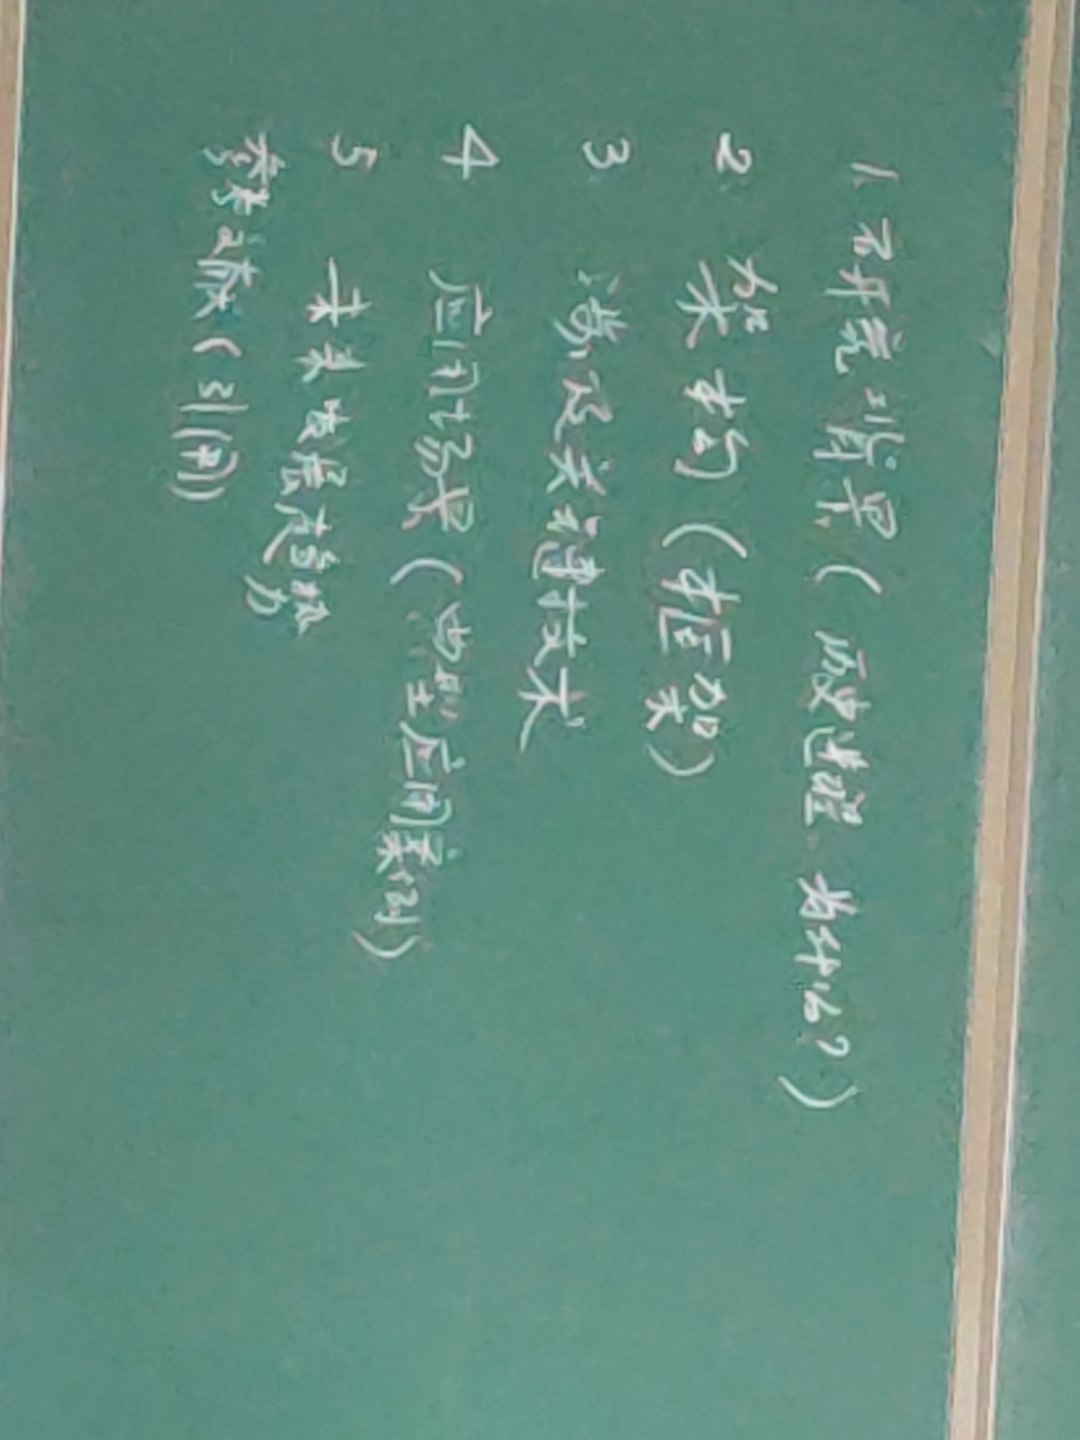 1. 研究背景（历史进程 为什么？）
2. 架构（框架）
3. 涉及关键技术
4 应用场景（典型应用案例）
5 未来发展趋势
参考文献（引用）